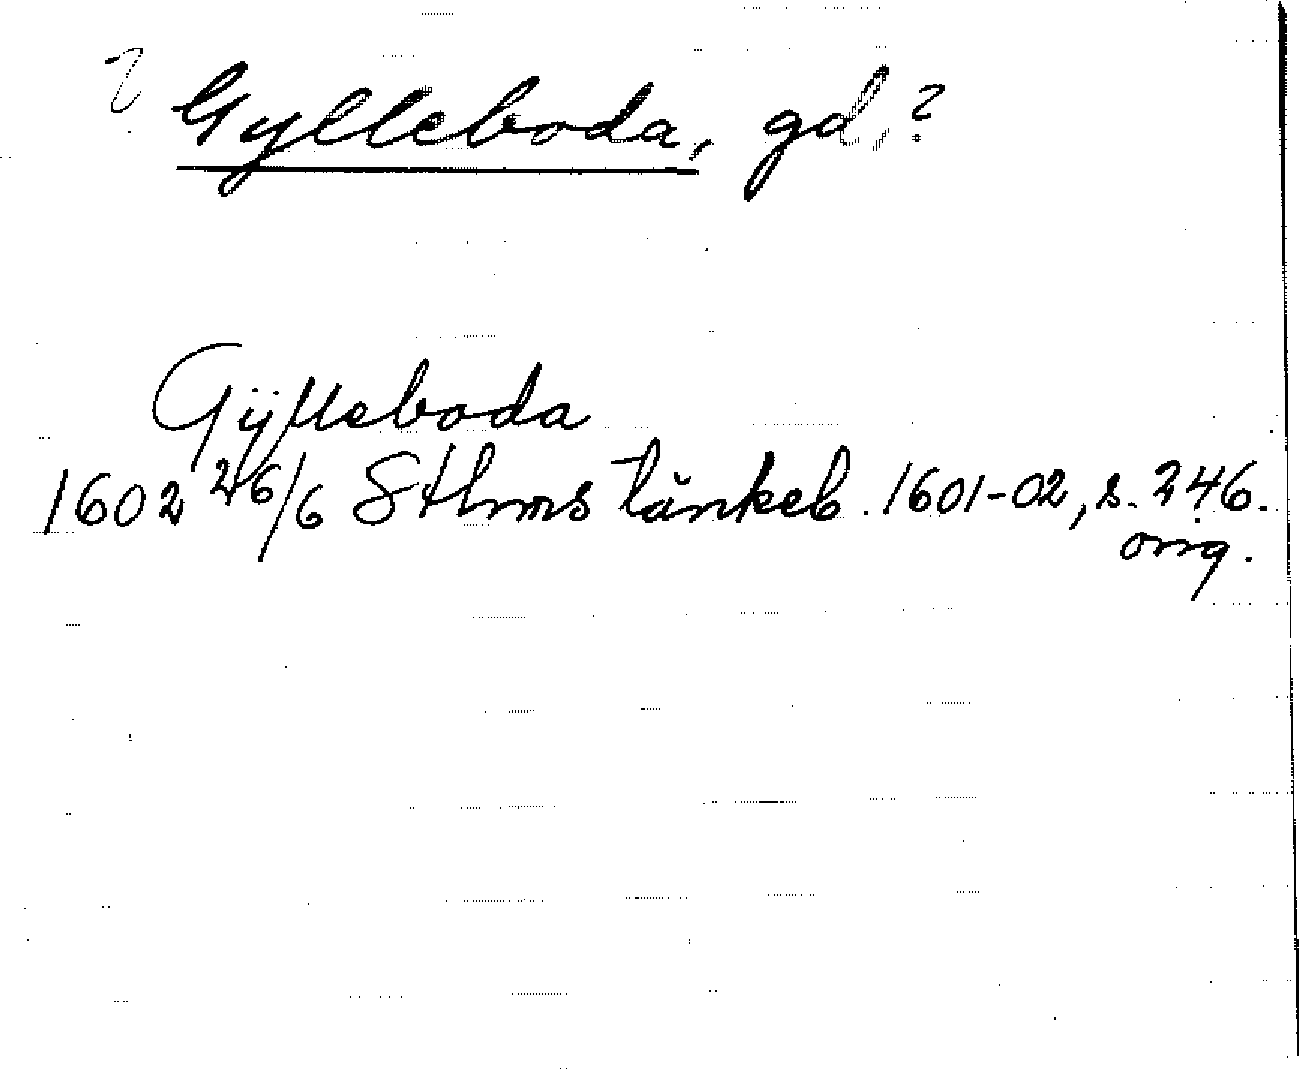 ? Gylleboda, gd, ?
Gÿlleboda
1602 26/6 Sthms tänkeb. 1601-02, s. 246.
orig.